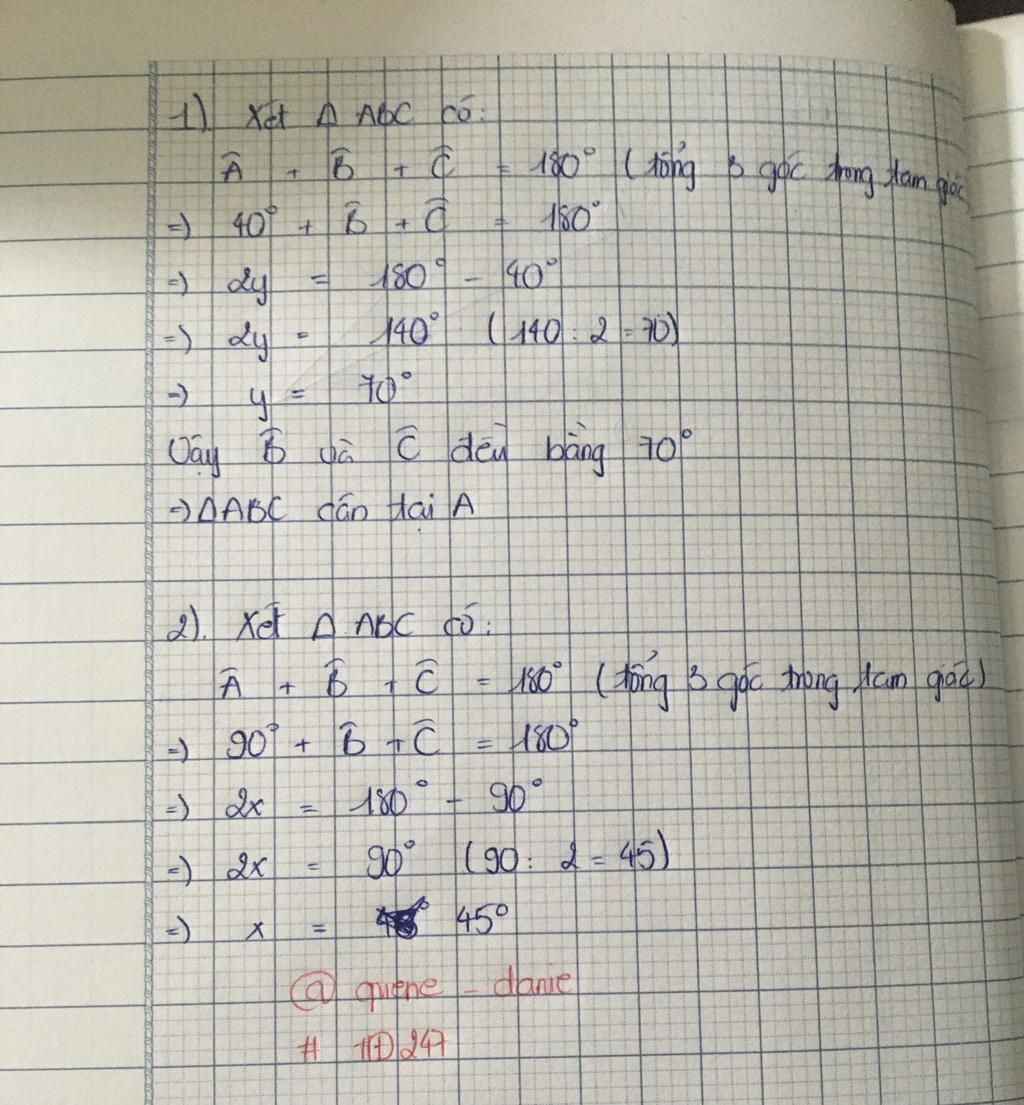 1) Xét Δ ABC có:
Â + B̂ + Ĉ = 180° (tổng 3 góc trong tam giác
=) 40° + B̂ + Ĉ = 180°
=) 2y = 180° - 40°
=) 2y = 140° (140 : 2 = 70)
=) y = 70°
Vậy B̂ và Ĉ đều bằng 70°
=) ΔABC cân tại A
2). Xét Δ ABC có:
Â + B̂ + Ĉ = 180° (tổng 3 góc trong tam giác)
=) 90° + B̂ + Ĉ = 180°
=) 2x = 180° - 90°
=) 2x = 90° (90 : 2 = 45)
=) x = 45°
@ quene - danie
# 247